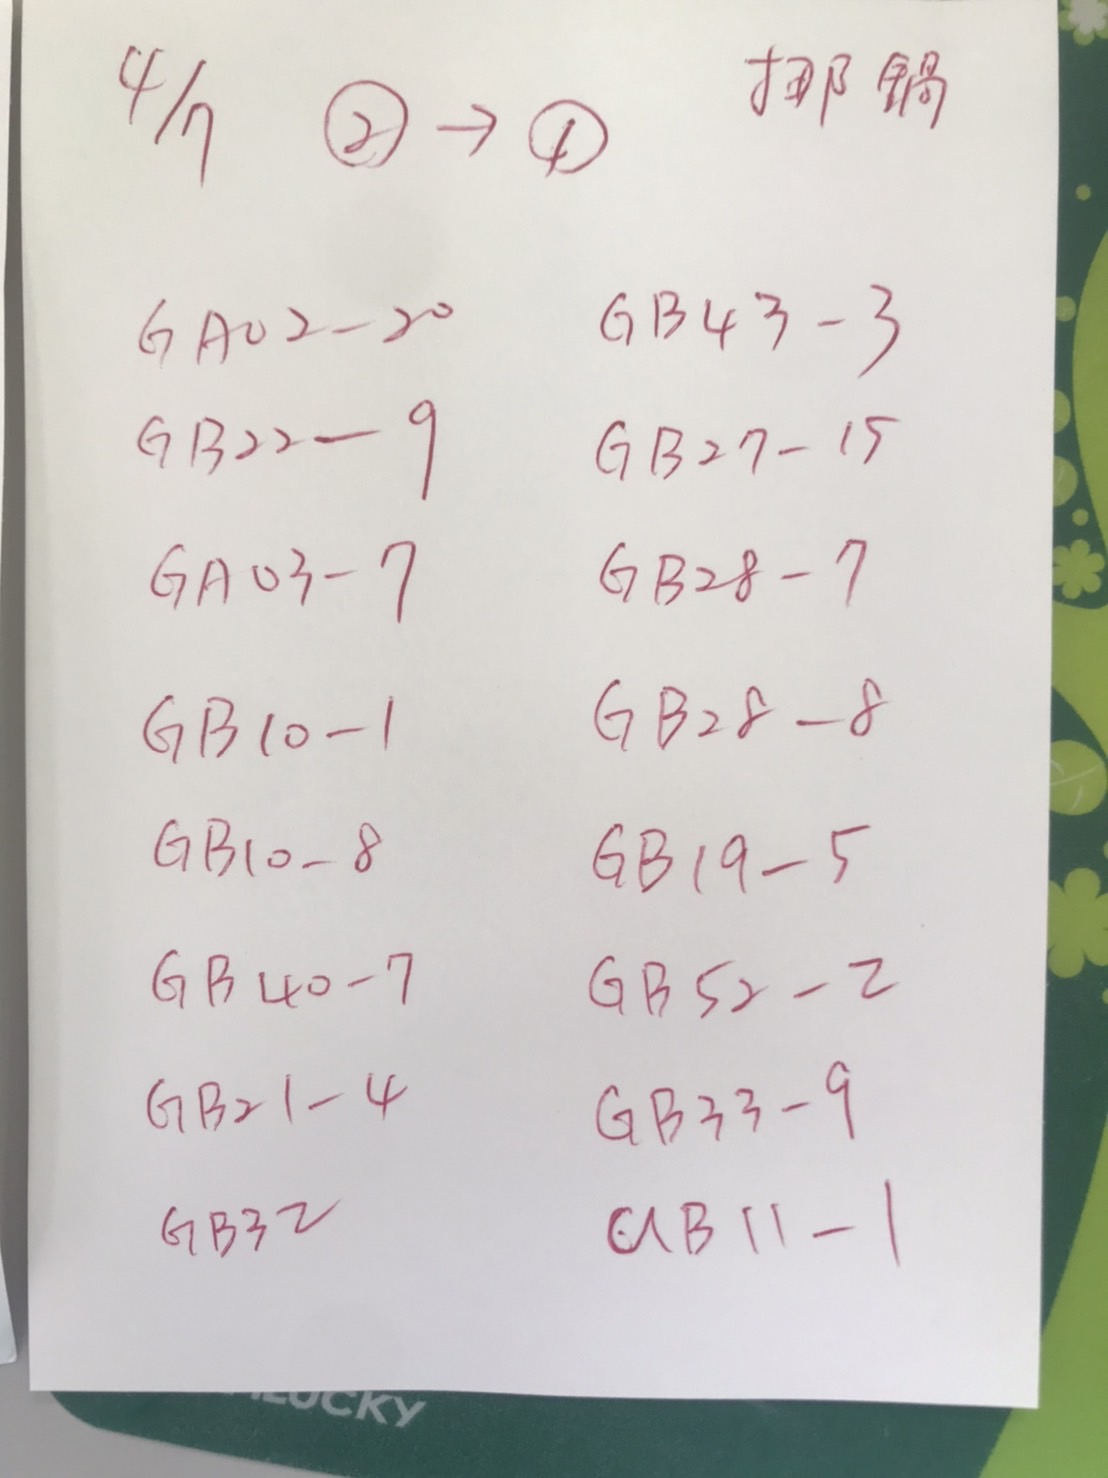 4/7 ②→① 挪鍋
GA02-20
GB22-9
GA03-7
GB10-1
GB10-8
GB40-7
GB21-4
GB32
GB43-3
GB27-15
GB28-7
GB28-8
GB19-5
GB52-2
GB33-9
GB11-1
LUCKY